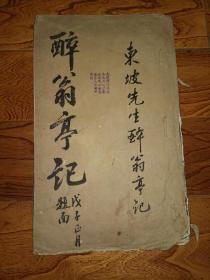 東坡先生醉翁亭記
醉翁亭記
戊子正月
題南